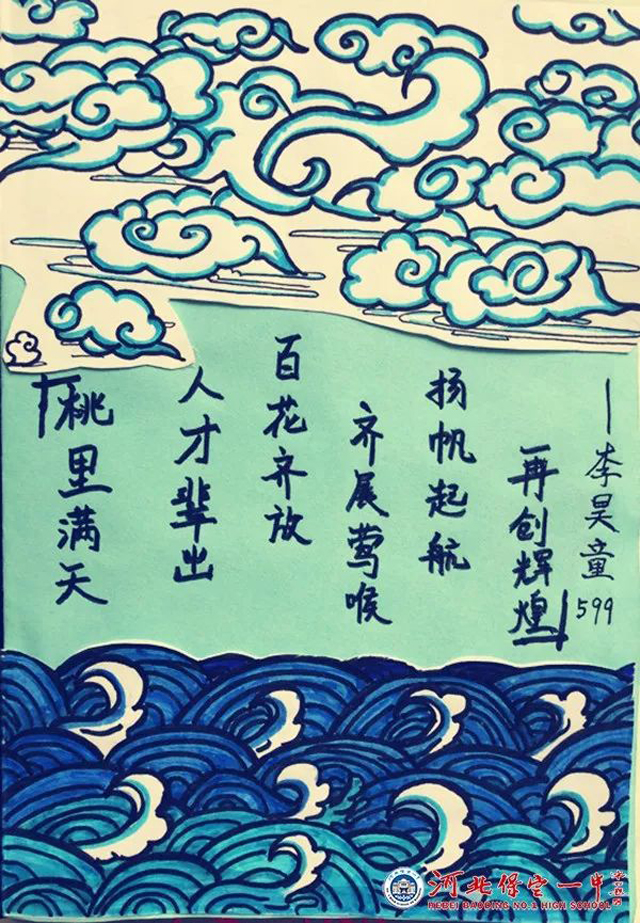 「桃里满天
人才辈出
百花齐放
齐展莺喉
扬帆起航
再创辉煌」
—李昊童
599
河北保定一中
HEBEI BAODING NO.1 HIGH SCHOOL